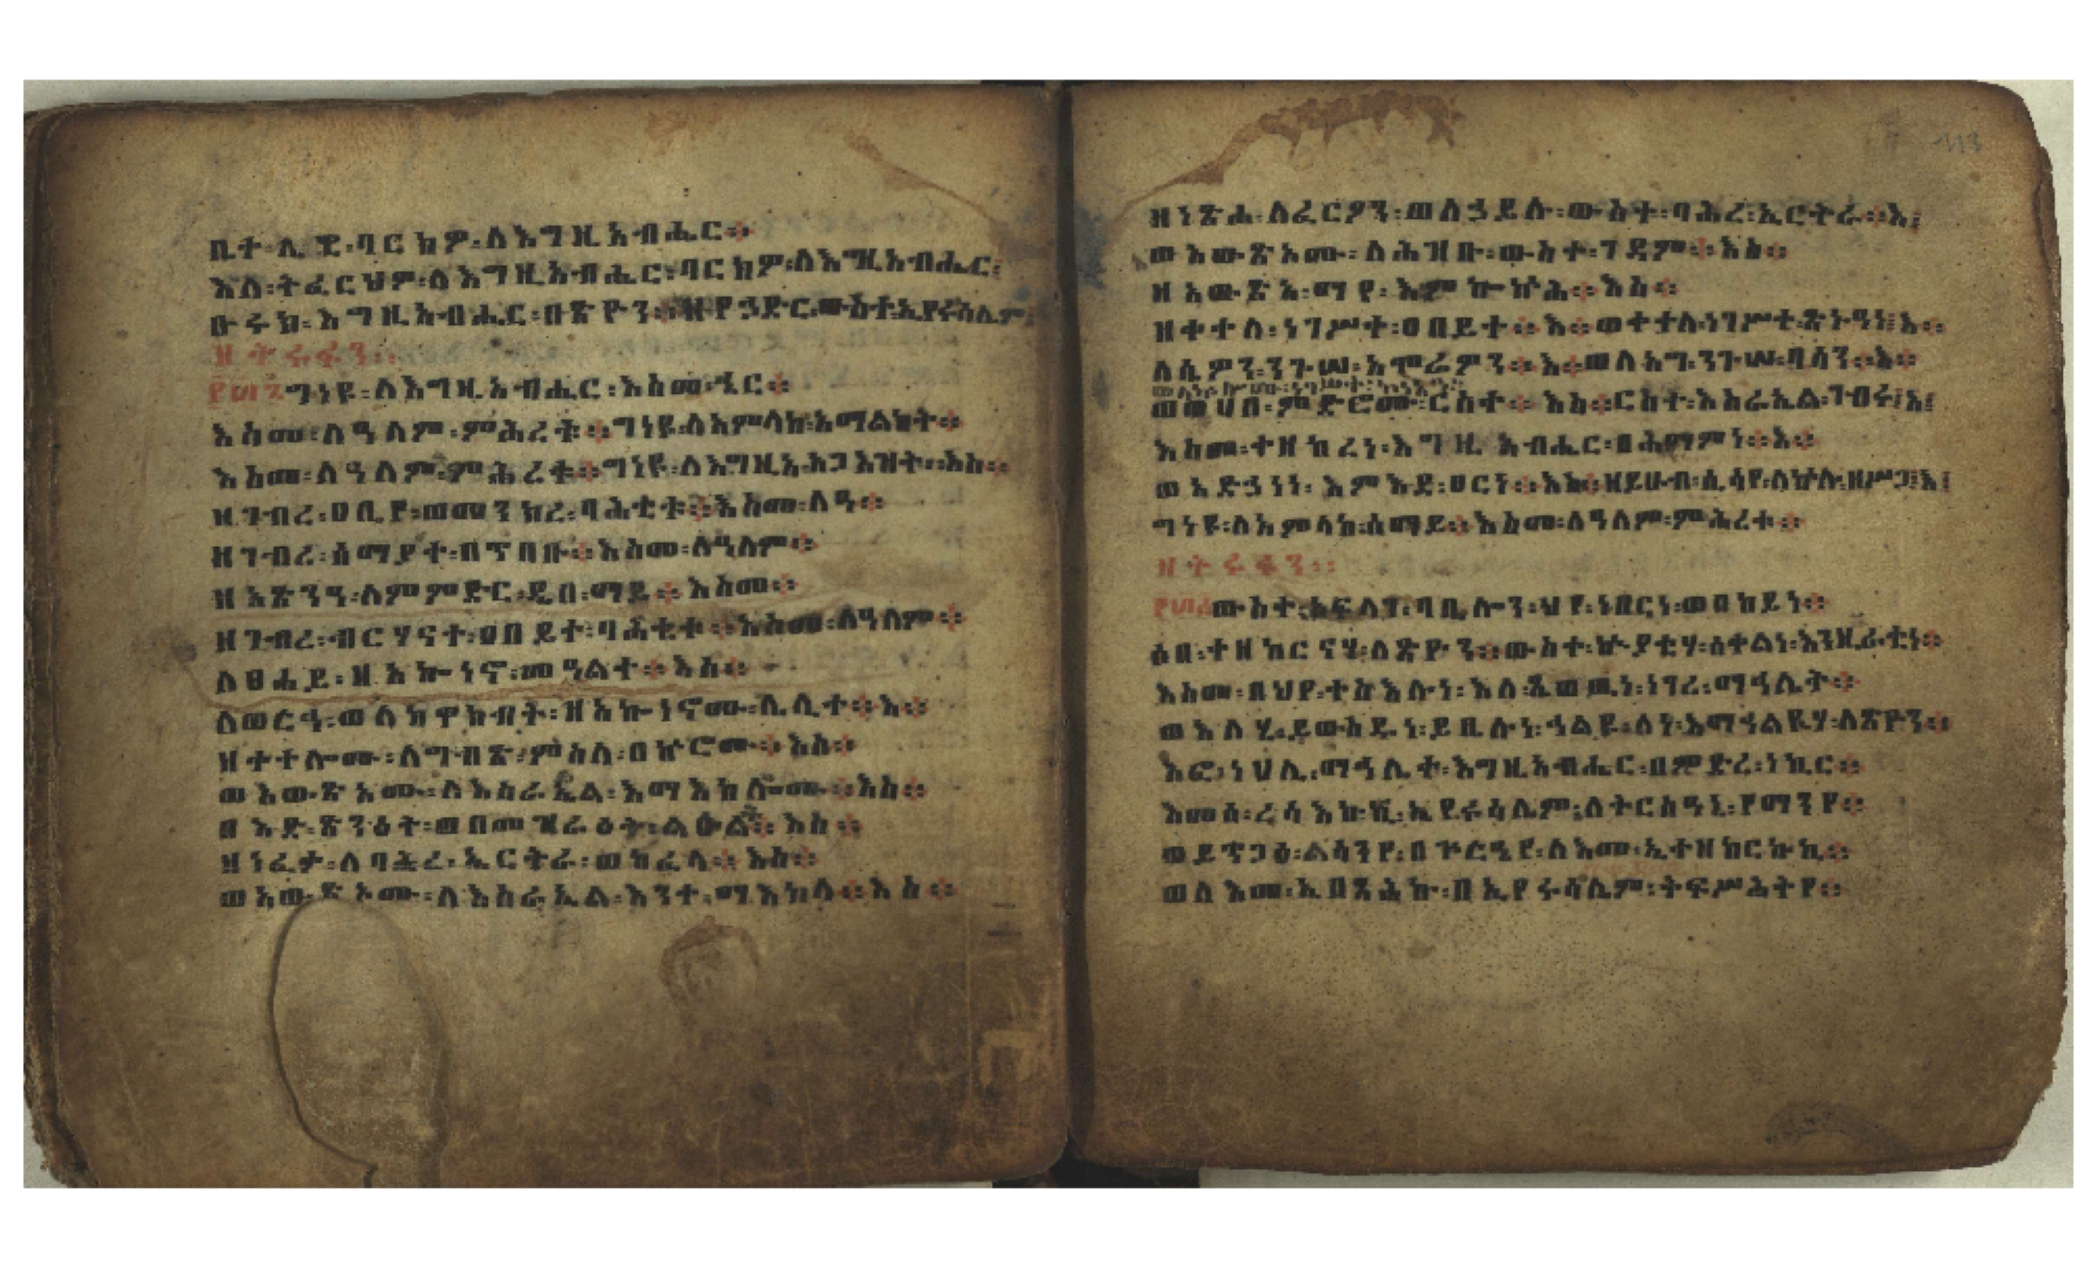 ቤተ፡ሌዊ፡ባርክዎ፡ለእግዚአብሔር።
እለ፡ትፈርህዎ፡ለእግዚአብሔር፡ባርክዎ፡ለእግዚአብሔር፤
ቡሩክ፡እግዚአብሔር፡በጽዮን።ዘየኃድር፡ውስተ፡ኢየሩሳሌም፤
ዘትሩፋን።
፻፴፭ግነዩ፡ለእግዚአብሔር፡እስመ፡ኄር።
እስመ፡ለዓለም፡ምሕረቱ።ግነዩ፡ለአምላከ፡አማልክት።
እስመ፡ለዓለም፡ምሕረቱ።ግነዩ፡ለእግዚአ፡አጋእዝት።እስ።
ዘገብረ፡ዐቢየ፡ወመንክረ፡ባሕቲቱ።እስመ፡ለዓ።
ዘገብረ፡ሰማያተ፡በጥበቡ።እስመ፡ለዓለም።
ዘአጽንዓ፡ለምምድር፡ዲበ፡ማይ።እስመ።
ዘገብረ፡ብርሃናተ፡ዐበይተ፡ባሕቲቱ።እስመ፡ለዓለም።
ለፀሐይ፡ዘአኰነኖ፡መዓልተ።እስ።
ለወርኅ፡ወለከዋክብት፡ዘአኰነኖሙ፡ሌሊተ።እ።
ዘቀተሎሙ፡ለግብጽ፡ምስለ፡በኵሮሙ።እስ።
ወአውጽአሙ፡ለእስራኤል፡እማእከሎሙ።እስ።
በእድ፡ጽንዕት፡ወበመዝራዕት፡ልዑል።እስ።
ዘነፈቃ፡ለባሕረ፡ኤርትራ፡ወከፈላ።እስ።
ወአውፅአሙ፡ለእስራኤል፡እንተ፡ማእከላ።እስ።
ዘነጽሐ፡ለፈርዖን፡ወለኃይሉ፡ውስተ፡ባሕረ፡ኤርትራ።እ፤
ወአውጽአሙ፡ለሕዝቡ፡ውስተ፡ገዳም።እስ።
ዘአውጽአ፡ማየ፡እምኰኵሕ።እስ።
ዘቀተለ፡ነገሥተ፡ዐበይተ።እ።ወቀተለ፡ነገሥተ፡ጽኑዓነ፤እ።
ለሴዎን፡ንጉሠ፡አሞሬዎን።እ።ወለአግ፡ንጉሠ፡ባሳን።እ።
ወወሀበ፡ምድሮሙ፡ርስተ።እስ።ርስተ፡እስራኤል፡ገብሩ፤እ፤
እስመ፡ተዘከረነ፡እግዚአብሔር፡በሕማምነ።እ።
ወአድኃነነ፡እምእደ፡ፀርነ።እስ።ዘይሁብ፡ሲሳየ፡ለኵሉ፡ዘሥጋ፤እ፤
ግነዩ፡ለአምላከ፡ሰማይ።እስመ፡ለዓለም፡ምሕረቱ።
ዘትሩፋን።
፻፴፮ውስተ፡አፍላገ፡ባቢሎን፡ህየ፡ነበርነ፡ወበከይነ።
ሶበ፡ተዘከርናሃ፡ለጽዮን።ውስተ፡ኵያቲሃ፡ሰቀልነ፡እንዚራቲነ።
እስመ፡በህየ፡ተስእሉነ፡እለ፡ፄወዉነ፡ነገረ፡ማኅሌት።
ወእለሂ፡ይወስዱነ፡ይቤሉነ፡ኅልዩ፡ለነ፡እማኅልዪሃ፡ለጽዮን።
እፎ፡ነሀሊ፡ማኅሌተ፡እግዚአብሔር፡በምድረ፡ነኪር።
እመሰ፡ረሳእኩኪ፡ኢየሩሳሌም፤ለትርስዓኒ፡የማንየ።
ወይጥጋዕ፡ልሳንየ፡በጕርዔየ፡ለእመ፡ኢተዘከርኩኪ።
ወለእመ፡ኢበጻሕኩ፡በኢየሩሳሌም፡ትፍሥሕትየ።